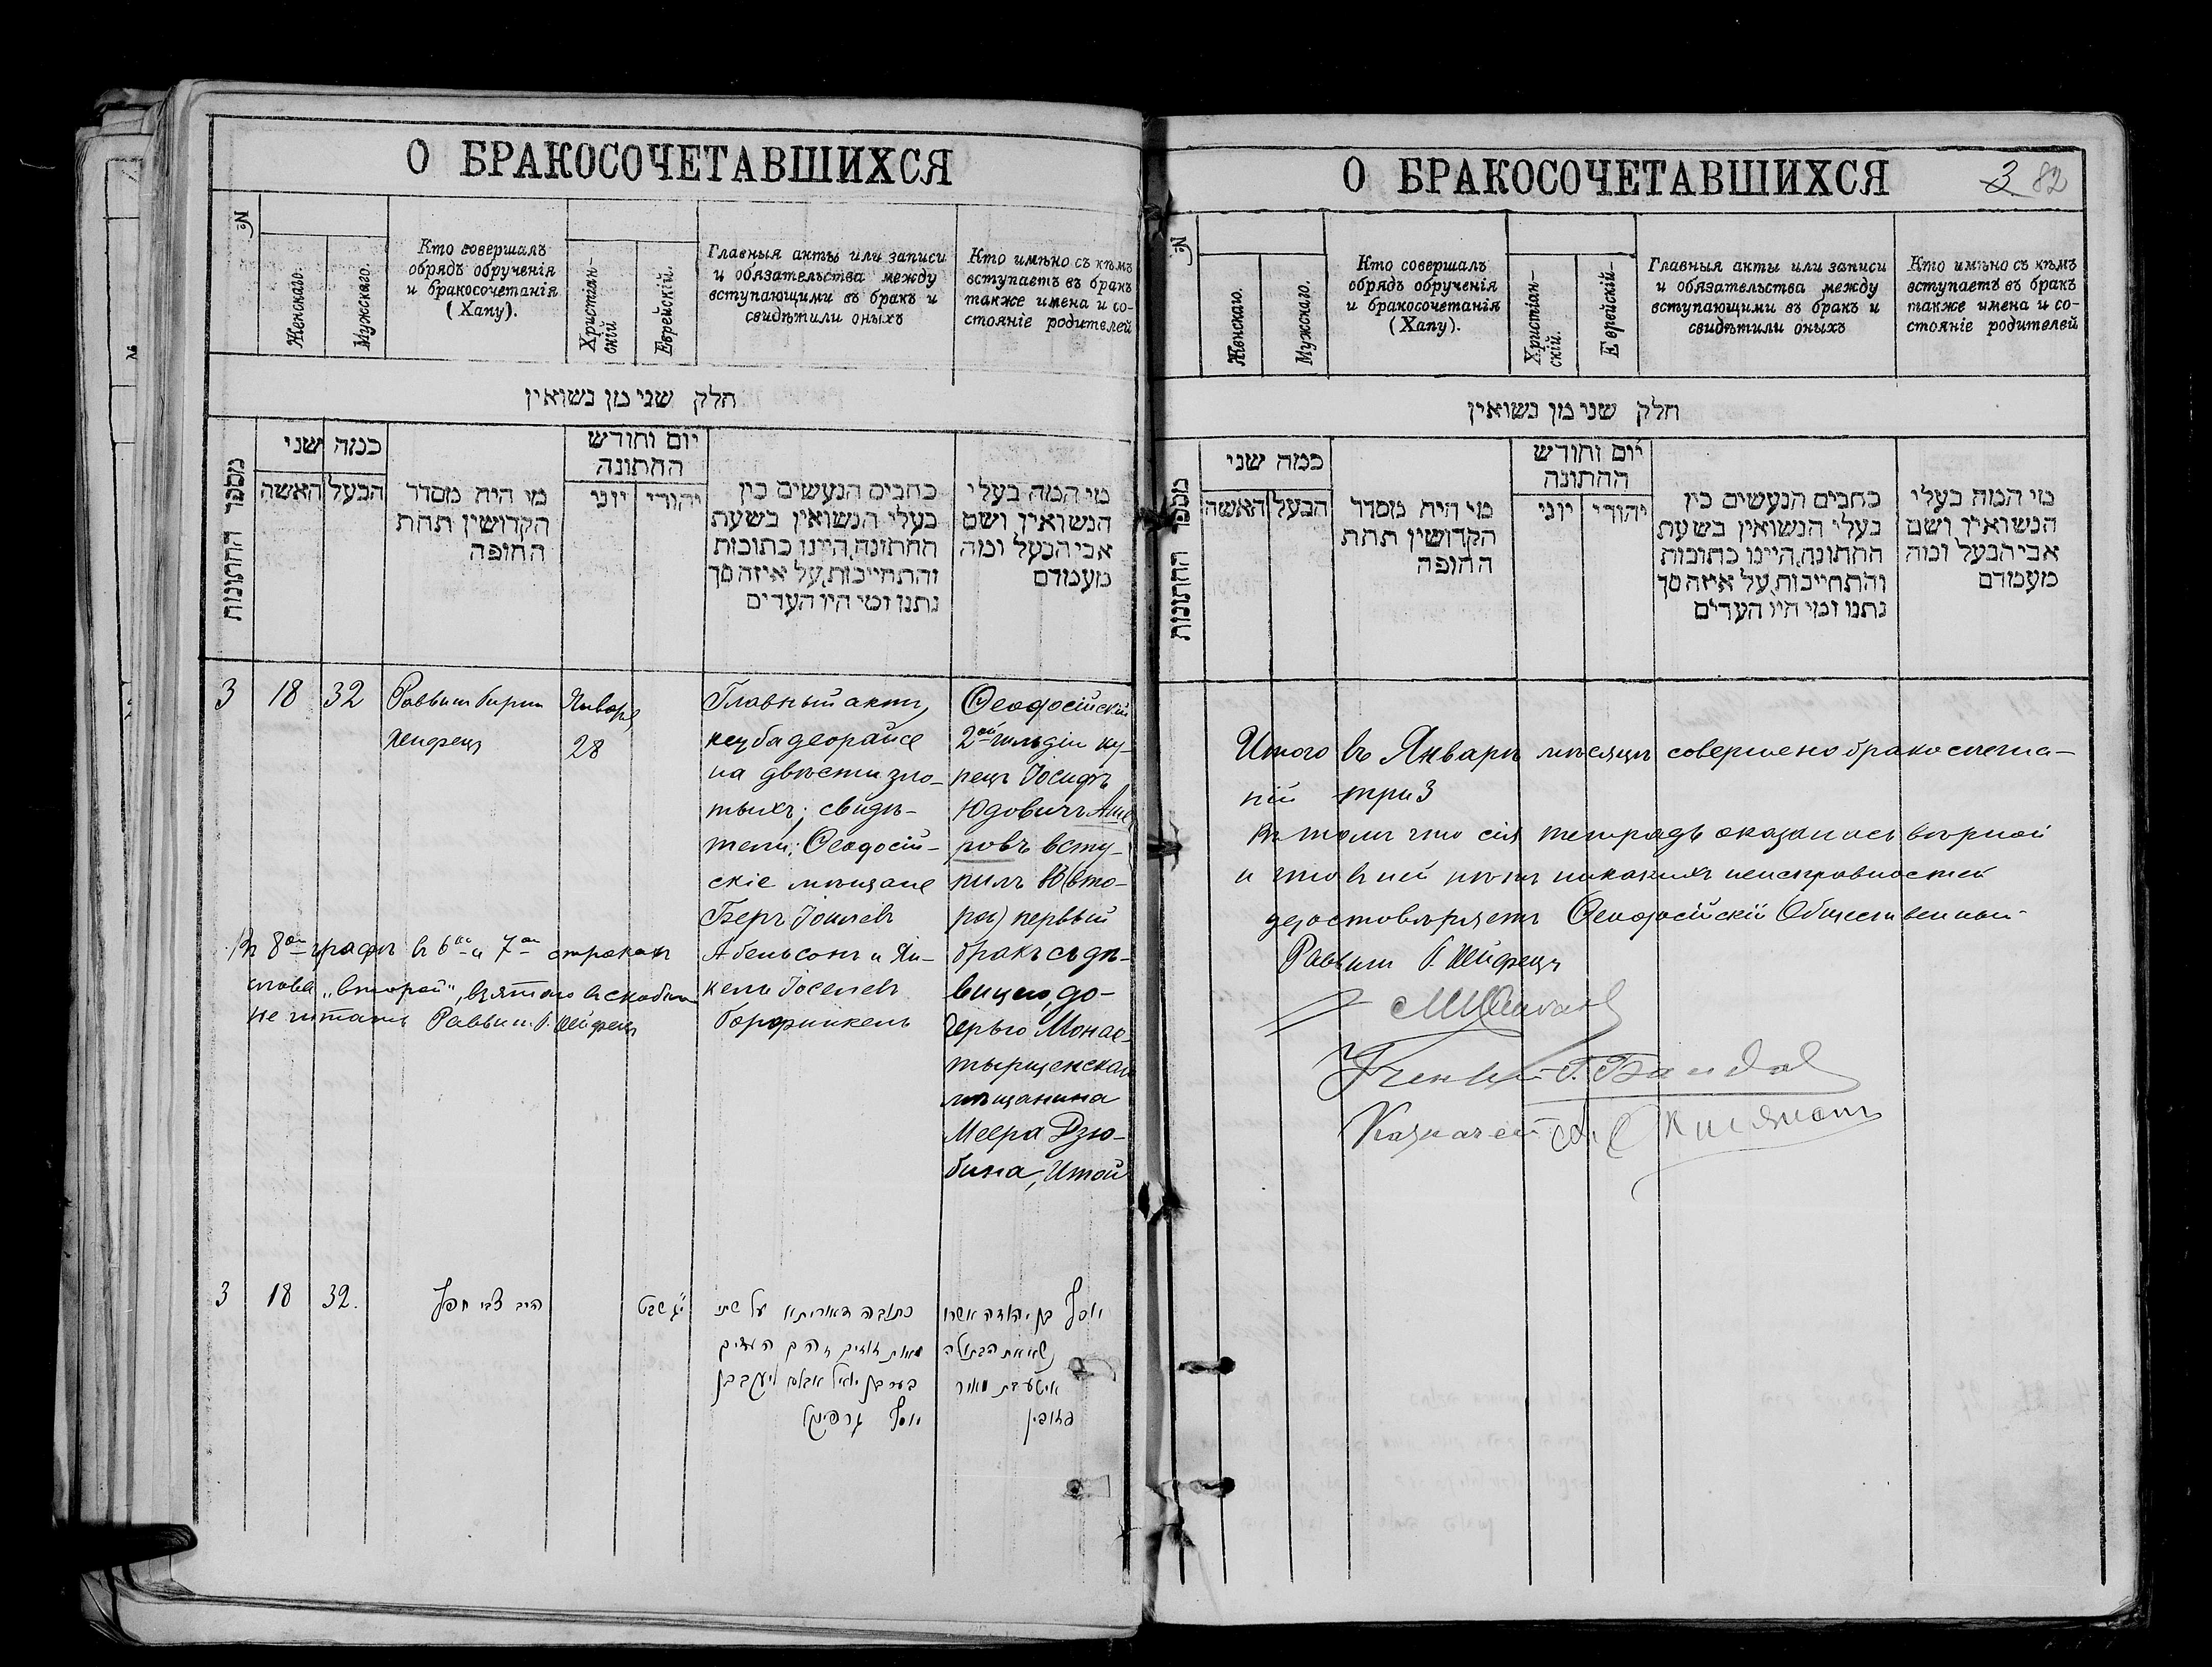 О БРАКОСОЧЕТАВШИХСЯ
№
Женскаго.
Мужскаго.
Кто совершалъ
обрядъ обрученія
и бракосочетанія
(Хапу).
Христіан-
скій
Еврейскій.
Главныя акты или записи
и обязательства между
вступающими въ бракъ и
свидѣтили оныхъ
Кто имѣно съ кѣмъ
вступаетъ въ бракъ
также имена и со-
стояніе родителей
חלק שני מן נשואין
מספר החתונות
כמה שני
האשה
הבעל
מי היה מסדר
הקדושין תחת
החופה
יום וחודש
החתונה
יוני
יהודי
כתבים הנעשים בין
בעלי הנשואין בשעת
החתונה, היינו כתובות
והתחייבות, על איזה סך
נתנו ומי היו העדים
מי המה בעלי
הנשואין ושם
אבי הבעל ומה
מעמדם
3
18
32
Раввинъ
Хейфецъ
Январь
28
Главный актъ,
кецуба деорайсе
на двѣсти зло-
тыхъ; свидѣ-
тели: Ѳеодосій-
скіе мѣщане
Беръ Іоилевъ
Абельсонъ и Ян-
кель Іоселевъ
Горфинкель
Ѳеодосійскій
2ой гильдіи ку-
пецъ Іосифъ
Юдовичъ Аше
ровъ всту-
пилъ во (вто-
рой) первый
бракъ съ дѣ-
вицею, до-
черью Монас-
тырщенскаго
мѣщанина
Меера Дзю-
бина, Итой
Въ 8ой графѣ въ 6ой и 7ой строкахъ
слова „второй", взятаго въ скобки
не читать Раввинъ Хейфецъ
3
18
32.
הרב צבי חפץ
י״ג שבט
כתובה דאוריתא על שתי
מאות זוזים והם העדים
בער בן יואל אבלסן ויעקב בן
יוסף גרפינקל
יוסף בן יהודה אשרו
נשא את הבתולה
איטע בת מאיר
דזובין
О БРАКОСОЧЕТАВШИХСЯ
3 82
№
Женскаго.
Мужскаго.
Кто совершалъ
обрядъ обрученія
и бракосочетанія
(Хапу).
Христіан-
скій.
Еврейскій-
Главныя акты или записи
и обязательства между
вступающими въ бракъ и
свидѣтили оныхъ
Кто имѣно съ кѣмъ
вступаетъ въ бракъ
также имена и со-
стояніе родителей
חלק שני מן נשואין
מספר החתונות
כמה שני
האשה
הבעל
מי היה מסדר
הקדושין תחת
החופה
יום וחודש
החתונה
יוני
יהודי
כתבים הנעשים בין
בעלי הנשואין בשעת
החתונה, היינו כתובות
והתחייבות, על איזה סך
נתנו ומי היו העדים
מי המה בעלי
הנשואין ושם
אבי הבעל ומה
מעמדם
Итого въ Январѣ мѣсяцѣ совершено бракосочета-
ній три 3
Въ томъ что сія тетрадь оказалась вѣрной
и что въ ней нѣтъ никакихъ неисправностей
удостовѣряетъ Ѳеодосійскій Общественный
Раввинъ Хейфецъ
Ученый
Казначей